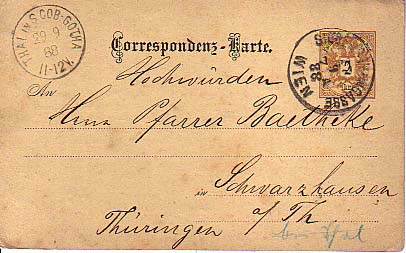 THAL IN S. COB-GOTHA
29 9
88
11-12V.
Correspondenz-Karte.
WIEN
88
2
Hochwürden
An
Herrn Pfarrer Baethcke
in Schwarzhausen
Thüringen a/Th
bei Thal